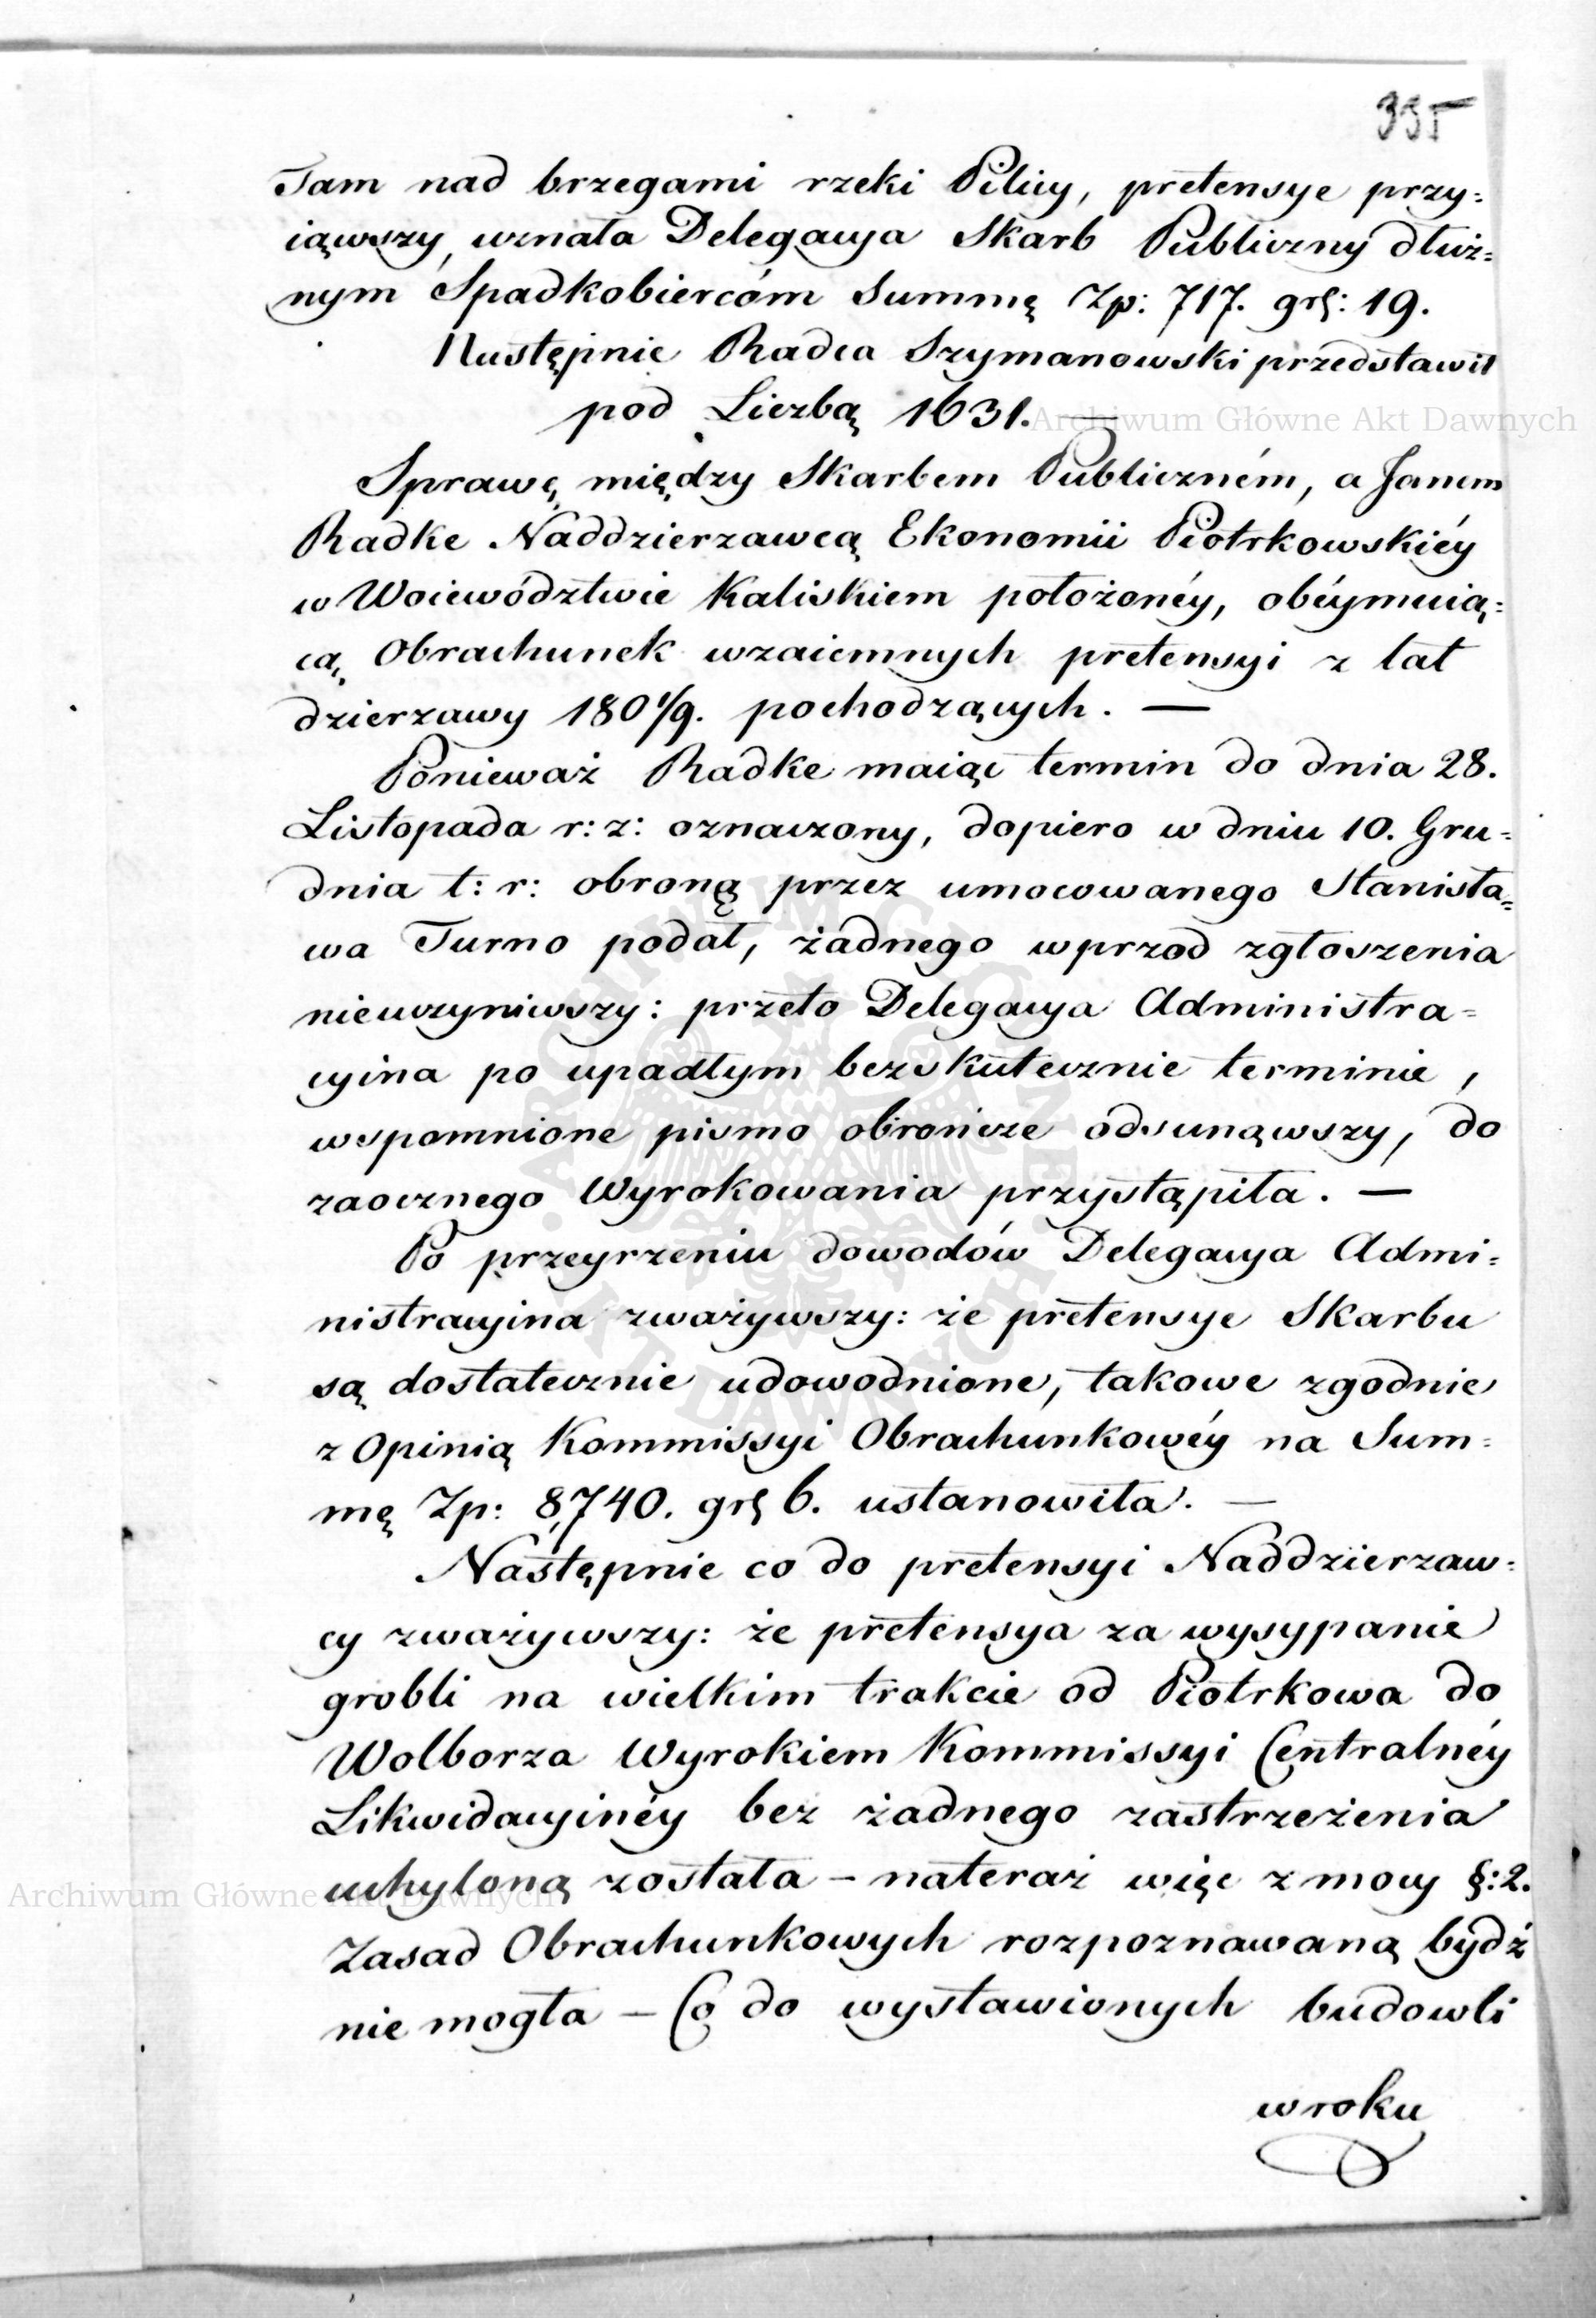 335
Tam nad brzegami rzeki Pilicy, pretensye przy=
iąwszy, uznała Delegacya Skarb Publiczny dłuż=
nym Spadkobiercóm Summę Zp: 717. grſ: 19.
Następnie Radca Szymanowski przedstawił
pod Liczbą 1631. —
Archiwum Główne Akt Dawnych
Sprawę między Skarbem Publiczném, a Janem
Radke Naddzierzawcą Ekonomii Piotrkowskiéy
w Woiewództwie Kaliskiem położonéy, obéymuią=
cą Obrachunek wzaiemnych pretensyi z lat
dzierzawy 180 1/9. pochodzących. —
Ponieważ Radke maiąc termin do dnia 28.
Listopada r: z: oznaczony, dopiero w dniu 10. Gru=
dnia t: r: obronę przez umocowanego Stanisła=
wa Turno podał, żadnego wprzod zgłoszenia
nieuczyniwszy: przeto Delegacya Administra=
cyina po upadłym bezskutecznie terminie,
wspomnione pismo obrończe odsunąwszy, do
zaocznego Wyrokowania przystąpiła. —
Po przeyrzeniu dowodów Delegacya Admi=
nistracyina zważywszy: że pretensye Skarbu
są dostatecznie udowodnione, takowe zgodnie
z Opinią Kommissyi Obrachunkowéy na Sum=
mę Zp: 8,740. grſ 6. ustanowiła. —
Następnie co do pretensyi Naddzierzaw=
cy zważywszy: że pretensya za wysypanie
grobli na wielkim trakcie od Piotrkowa do
Wolborza Wyrokiem Kommissyi Centralnéy
Likwidacyinéy bez żadnego zastrzeżenia
uchyloną została — nateraz więc z mocy §: 2.
Archiwum Główne Akt Dawnych
Zasad Obrachunkowych rozpoznawaną bydź
nie mogła — Co do wystawionych budowli
w roku
ARCHIWUM GŁÓWNE AKT DAWNYCH